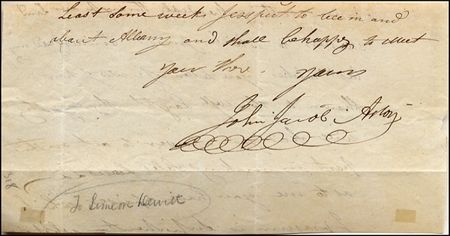 Least some weeks I expect to be in and
about Albany and shall be happy to meet
you ther. Yours
John Jacob Astor
To Simeon Dewitt